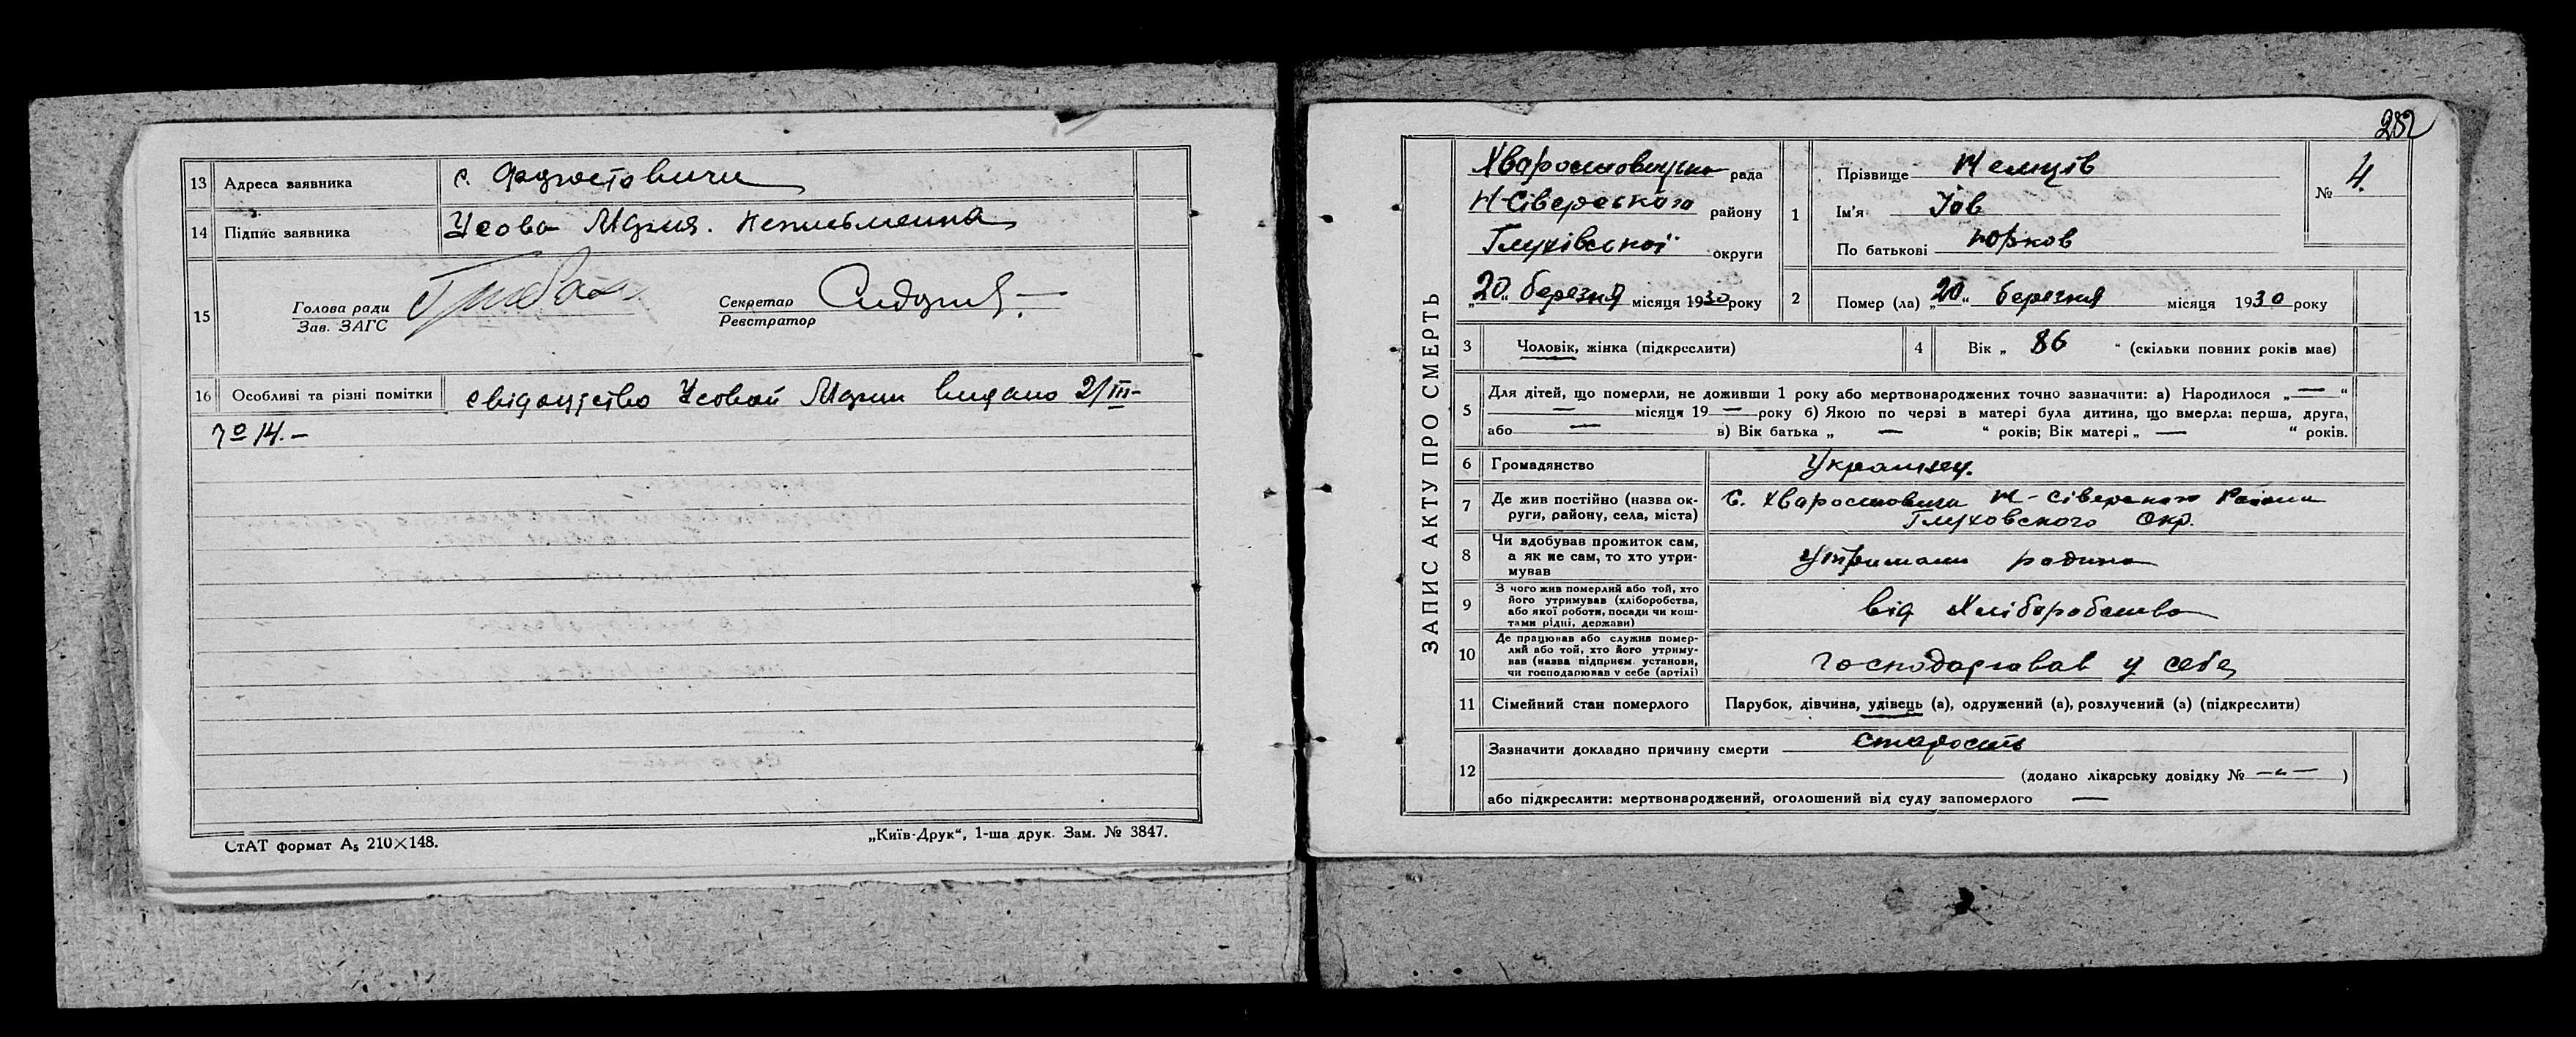 13 Адреса заявника с. Фаростовичи
14 Підпис заявника Усова Мария. Неписьменна
15 Голова ради Грибан Секретар
Зав. ЗАГС Реєстратор
16 Особливі та різні помітки свідоцтво Усовой Марии видано 21/III-
№ 14.-
СтАТ формат А₅ 210×148. „Київ-Друк“, 1-ша друк. Зам. № 3847.
282
ЗАПИС АКТУ ПРО СМЕРТЬ
Хваростовицька рада
Н-Сіверського району
Глухівської округи
„20“ березня місяця 1930 року
1 Прізвище Немців
Ім'я Іов
По батькові
№ 4.
2 Помер (ла) „20“ березня місяця 1930 року
3 Чоловік, жінка (підкреслити) 4 Вік „ 86 “ (скільки повних років має)
5 Для дітей, що померли, не доживши 1 року або мертвонароджених точно зазначити: а) Народилося „—“
— місяця 19 — року б) Якою по черзі в матері була дитина, що вмерла: перша, друга,
або — в) Вік батька „ — “ років; Вік матері „ — “ років.
6 Громадянство Украінец.
7 Де жив постійно (назва ок-
руги, району, села, міста) С. Хваростовичи Н-Сіверского Района
Глуховского Окр.
8 Чи здобував прожиток сам,
а як не сам, то хто утри-
мував Утримали родина
9 З чого жив померлий або той, хто
його утримував (хліборобства,
або якої роботи, посади чи кош-
тами рідні, держави) від Хліборобства
10 Де працював або служив помер-
лий або той, хто його утриму-
вав (назва підприєм. установи,
чи господарював у себе (артілі) Господарював у себе
11 Сімейний стан померлого Парубок, дівчина, удівець (а), одружений (а), розлучений (а) (підкреслити)
12 Зазначити докладно причину смерти старость
(додано лікарську довідку № —„— )
або підкреслити: мертвонароджений, оголошений від суду запомерлого —